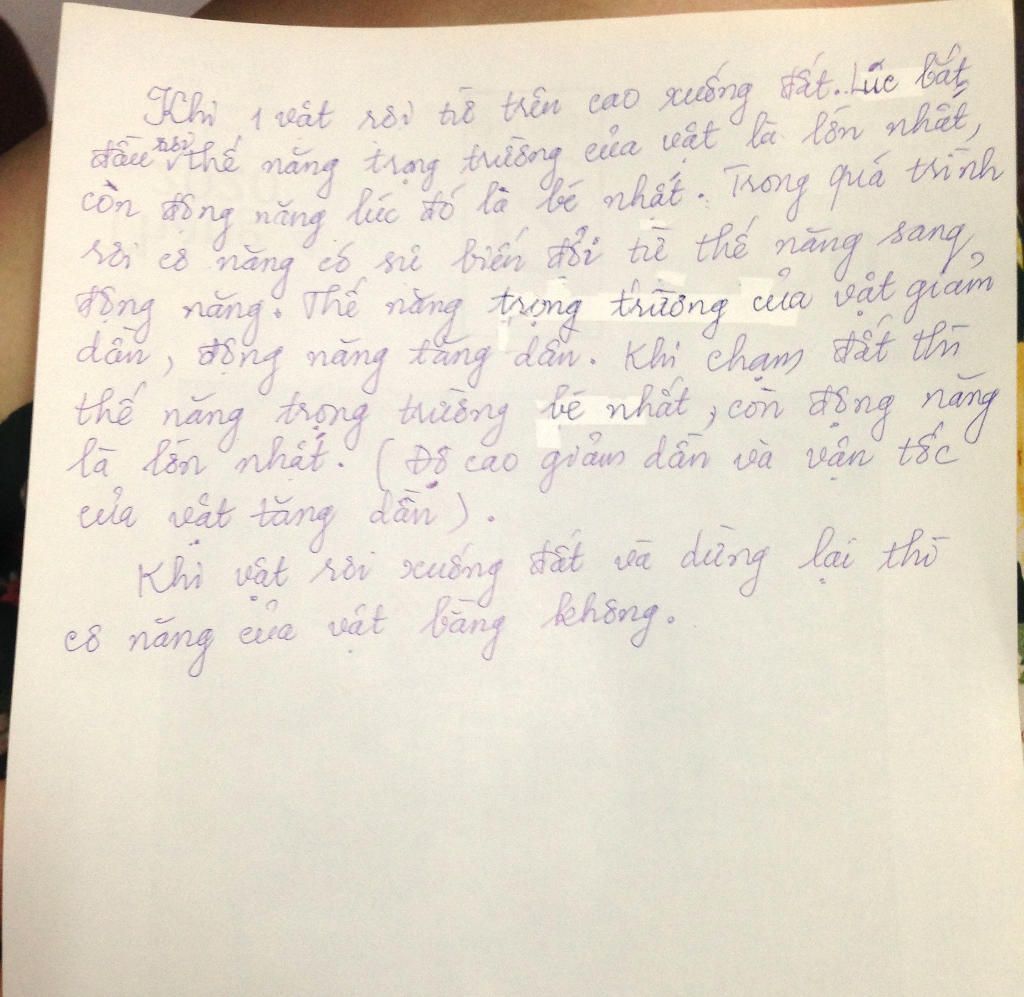 Khi 1 vật rơi từ trên cao xuống đất. Lúc bắt
đầu rơi thế năng trọng trường của vật là lớn nhất,
còn động năng lúc đó là bé nhất. Trong quá trình
rơi cơ năng có sự biến đổi từ thế năng sang
động năng. Thế năng trọng trường của vật giảm
dần, động năng tăng dần. Khi chạm đất thì
thế năng trọng trường bé nhất, còn động năng
là lớn nhất. (Độ cao giảm dần và vận tốc
của vật tăng dần).
Khi vật rơi xuống đất và dừng lại thì
cơ năng của vật bằng không.